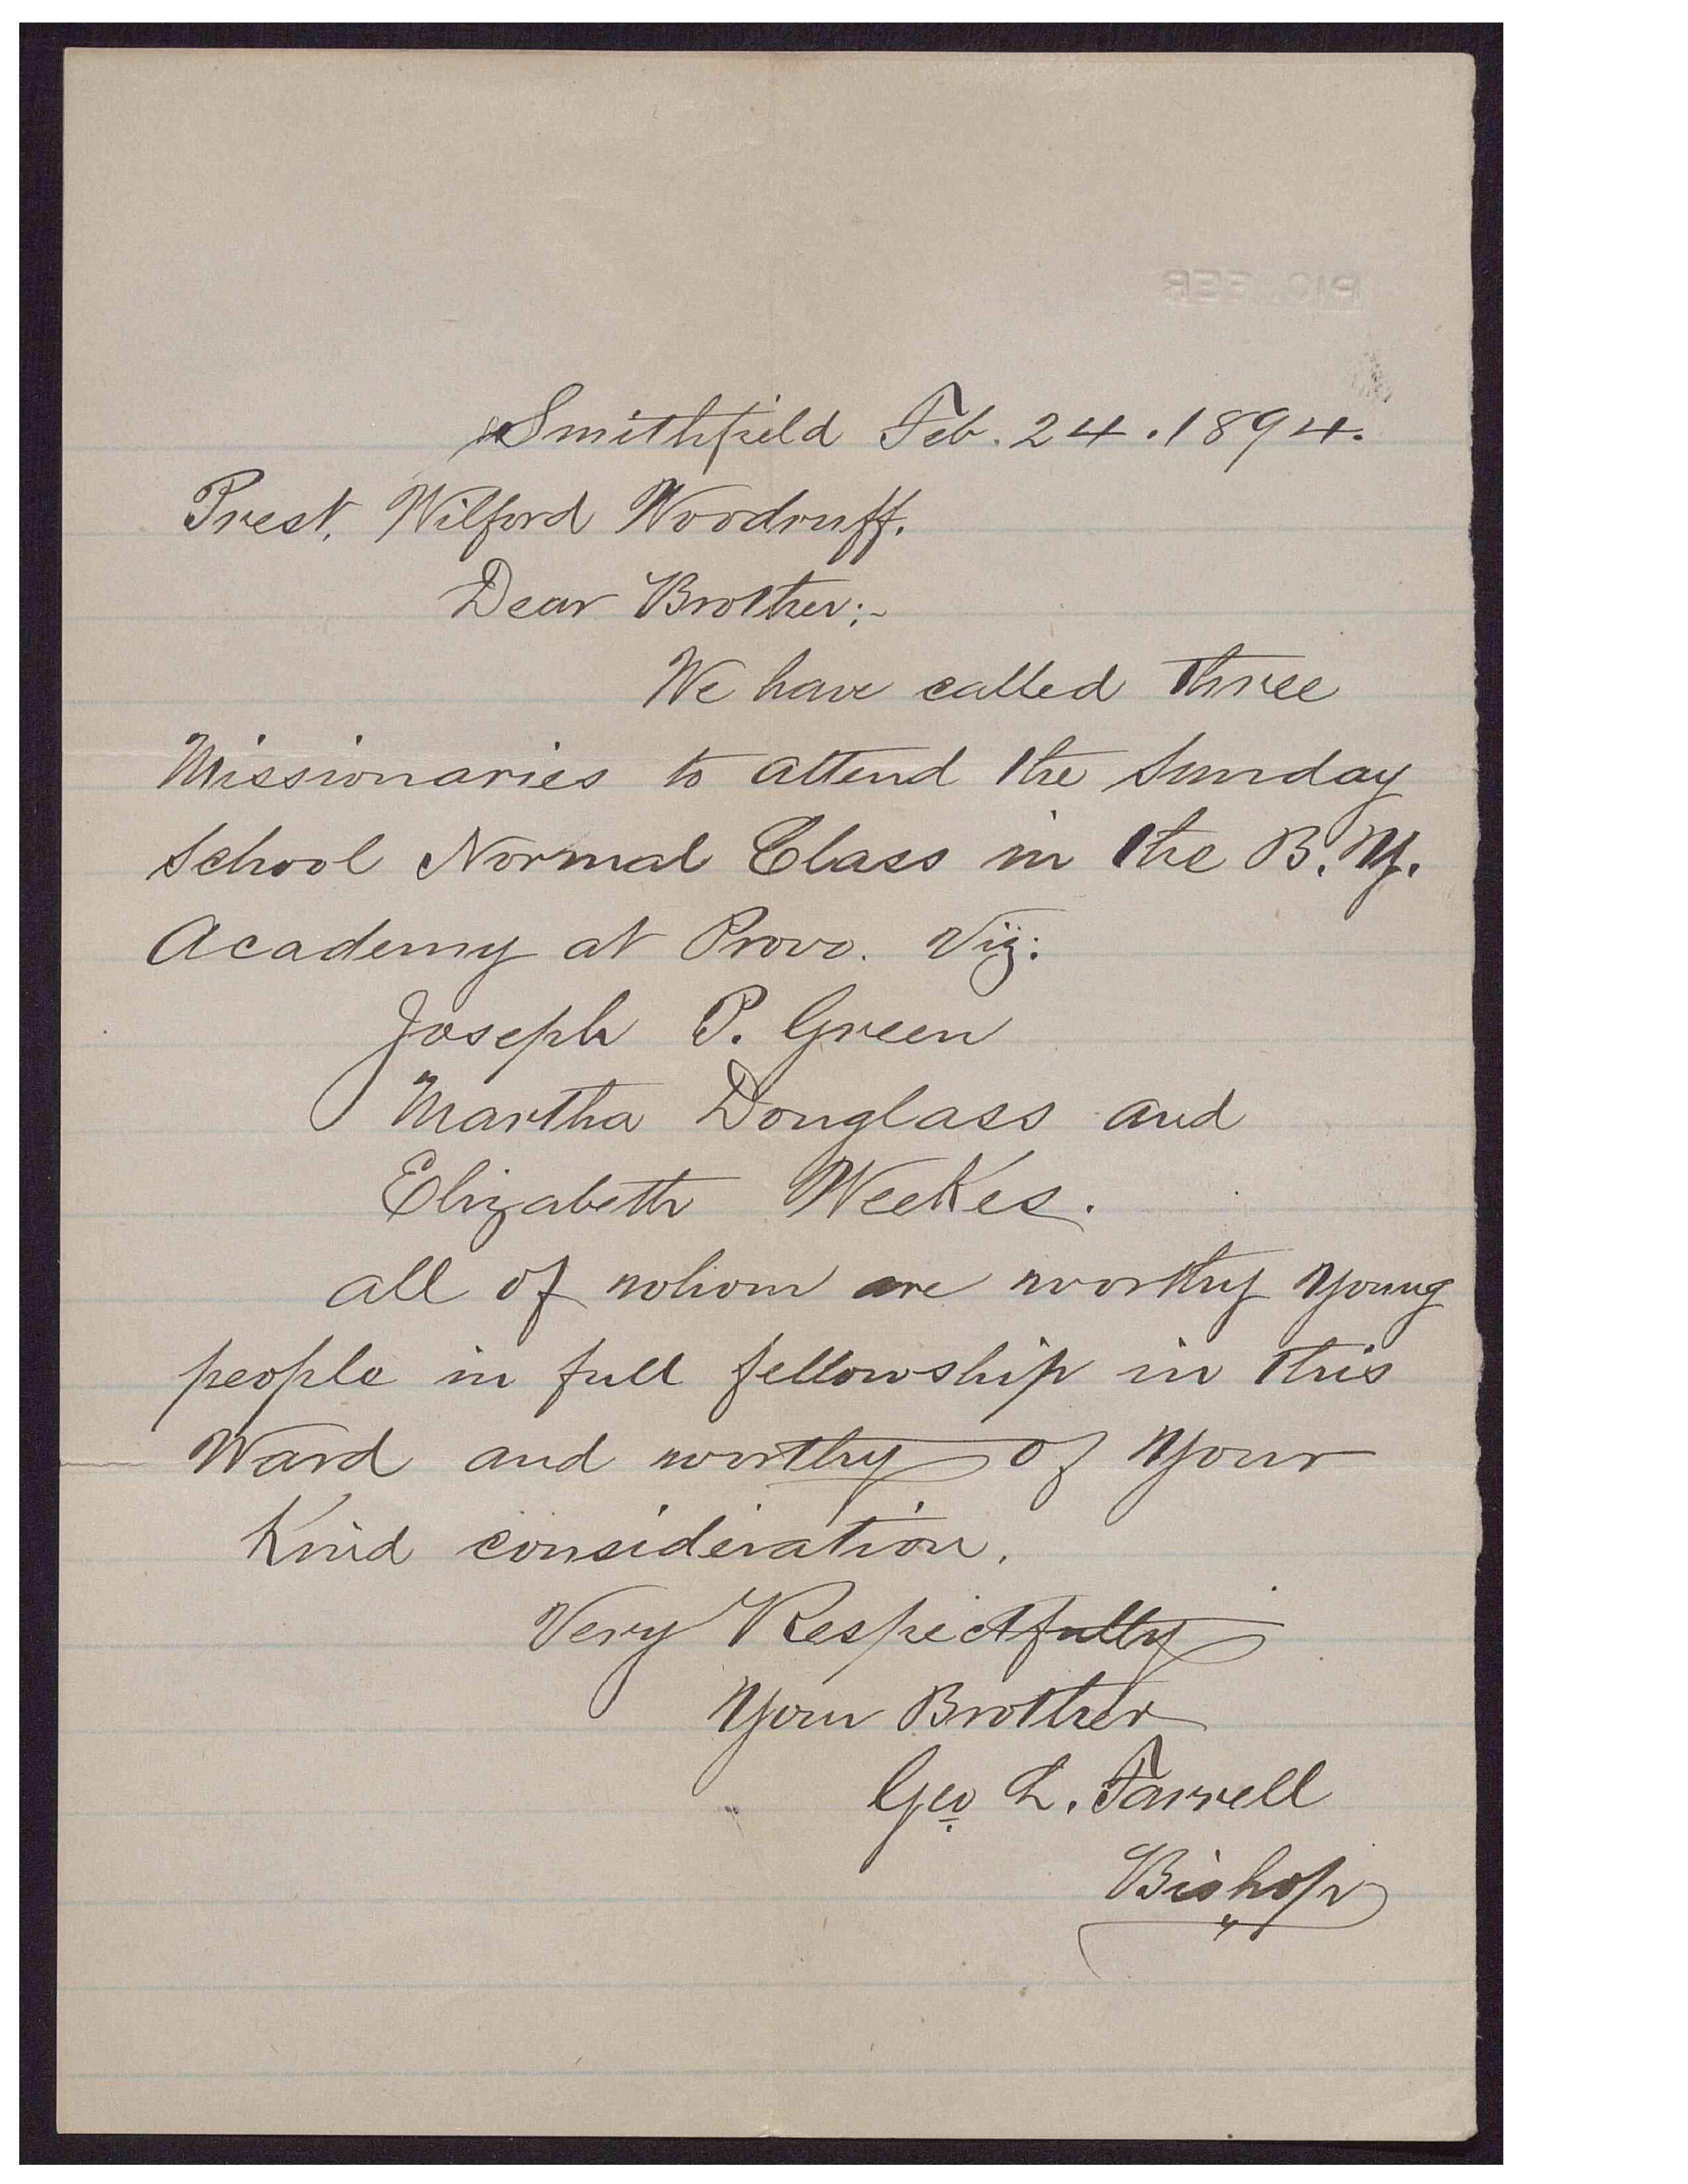 Smithfield Feb. 24. 1894.
Prest. Wilford Woodruff.
Dear Brother;-
We have called three
Missionaries to attend the Sunday
School Normal Class in the B. Y.
Academy at Provo. Viz:
Joseph P. Green
Martha Douglass and
Elizabeth Weekes.
all of whom are worthy young
people in full fellowship in this
Ward and worthy of your
Kind consideration.
Very Respectfully
Your Brother
Geo L. Farrell
Bishop